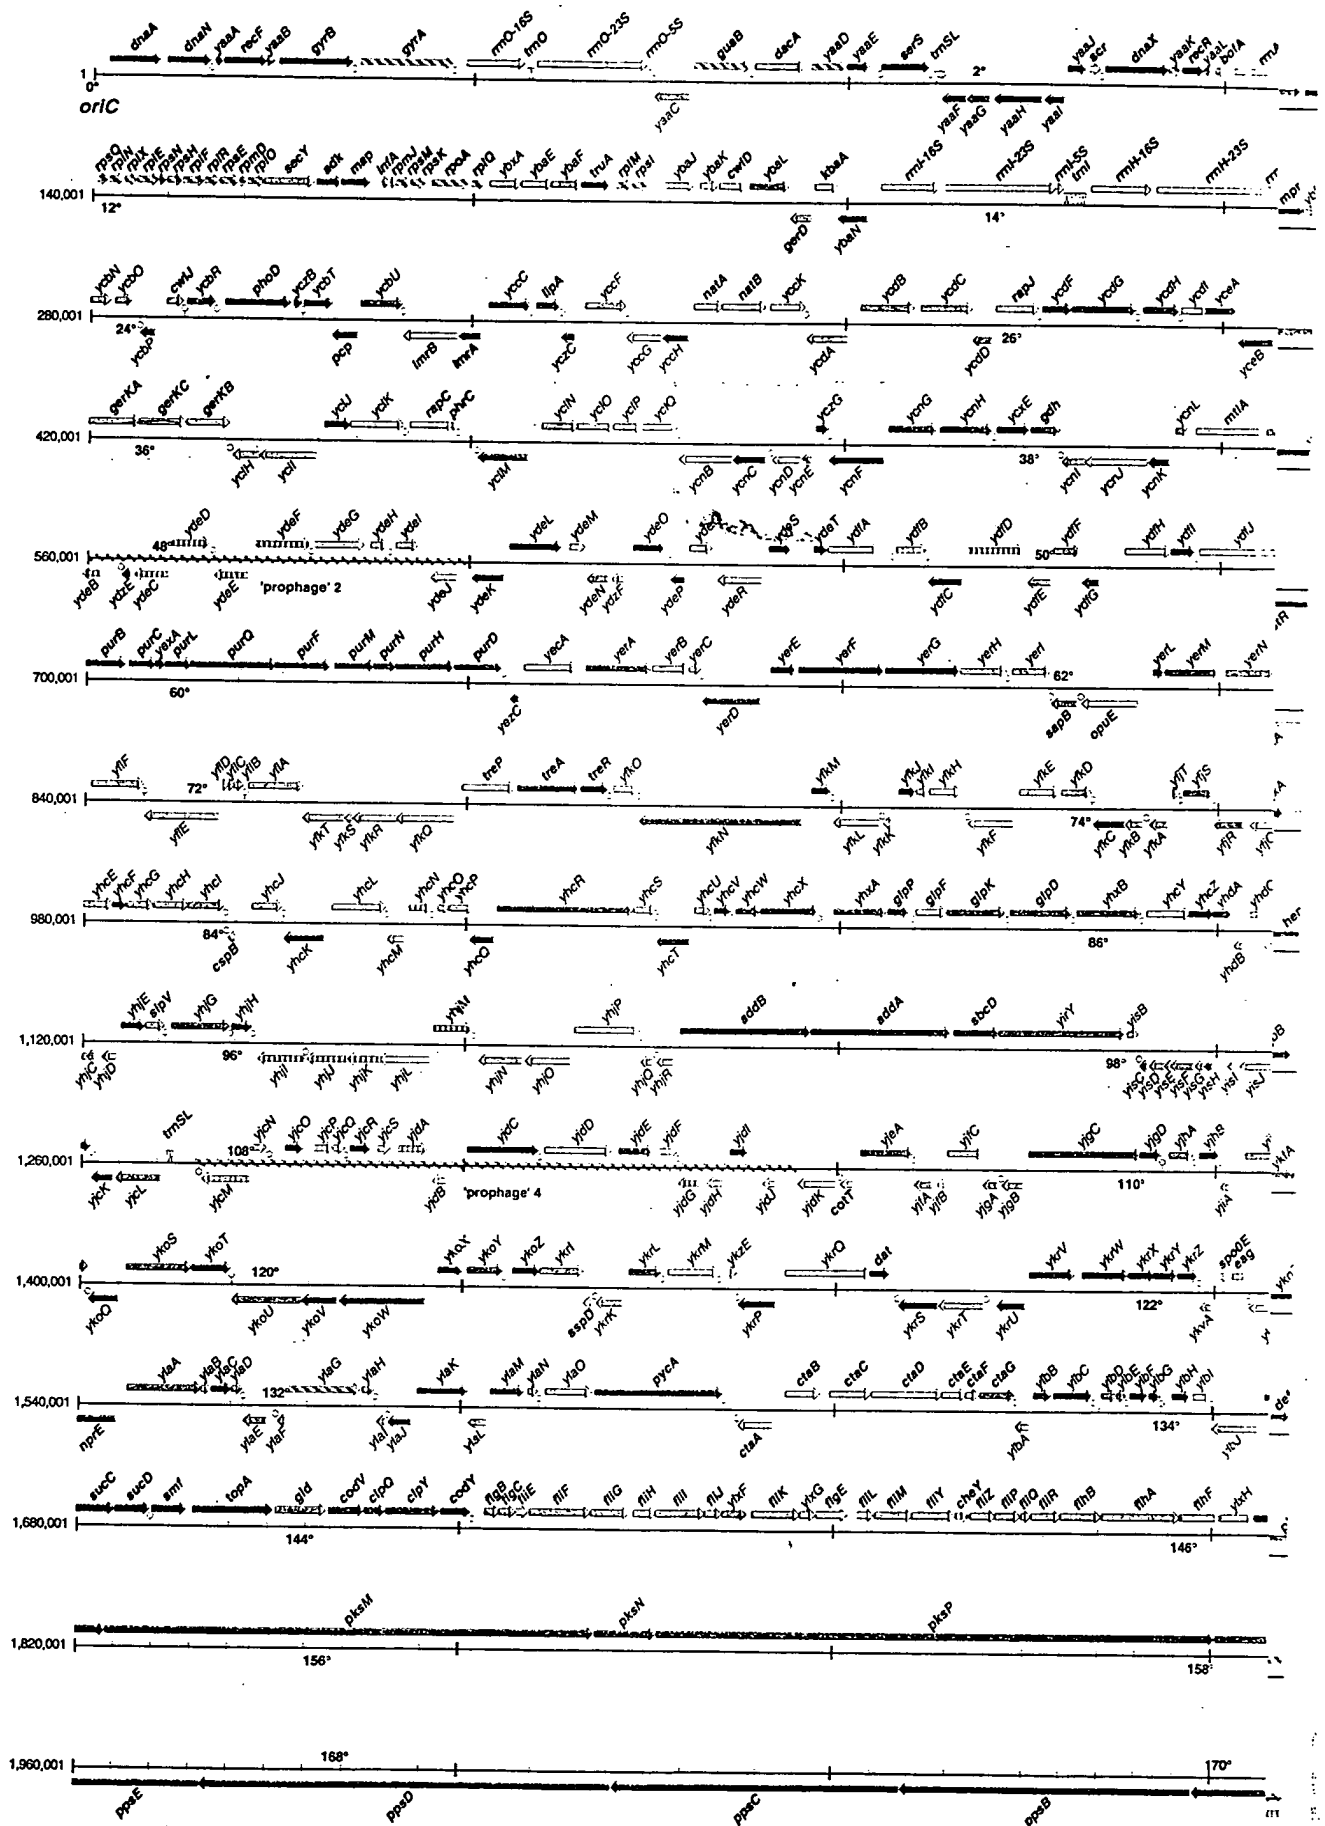 dnaA dnaN yaaA recF yaaB gyrB gyrA rrnO-16S trnO rrnO-23S rrnO-5S guaB dacA yaaD yaaE serS trnSL yaaJ scr dnaX yaaK recR yaaL bofA
1 0° 2°
oriC yaaC yaaF yaaG yaaH yaaI
rpsQ rplN rplX rplE rpsN rpsH rplF rplR rpsE rpmD rplO secY adk map infA rpmJ rpsM rpsK rpoA rplQ ybxA ybaE ybaF truA rplM rpsI ybaJ ybaK cwlD ybaL kbaA rrnI-16S rrnI-23S rrnI-5S trnI rrnH-16S rrnH-23S
140,001 12° 14° mpr
gerD ybaN
ycbN ycbO cwlJ ycbR phoD yczB ycbT ycbU yccC lipA yccF natA natB yccK ycdB ycdC rapJ ycdF ycdG ycdH ycdI yceA
280,001 24° 26°
ycbP pcp lmrB lmrA yczC yccG yccH ycdA ycdD yceB
gerKA gerKC gerKB yclJ yclK rapC phrC yclN yclO yclP yclQ yczG ycnG ycnH ycxE gdh ycnL mtlA
420,001 36° 38°
yclH yclI yclM ycnB ycnC ycnD ycnE ycnF ycnI ycnJ ycnK
ydeD ydeF ydeG ydeH ydeI ydeL ydeM ydeO ydeS ydeT ydfA ydfB ydfD ydfF ydfH ydfI ydfJ
560,001 48° 50°
ydeB ydzE ydeC ydeE 'prophage' 2 ydeJ ydeK ydeN ydzF ydeP ydeR ydfC ydfE ydfG
purB purC yexA purL purQ purF purM purN purH purD yecA yerA yerB yerC yerE yerF yerG yerH yerI yerL yerM yerN
700,001 60° 62°
yezC yerD sapB opuE
yflF yflD yflC yflB yflA treP treA treR yfkO yfkM yfkJ yfkI yfkH yfkE yfkD yfjT yfjS
840,001 72° 74°
yflE yfkT yfkS yfkR yfkQ yfkN yfkL yfkK yfkF yfkC yfkB yfkA yfjR
yhcE yhcF yhcG yhcH yhcI yhcJ yhcL yhcN yhcO yhcP yhcR yhcS yhcU yhcV yhcW yhcX yhxA glpP glpF glpK glpD yhxB yhcY yhcZ yhdA yhdC
980,001 84° 86°
cspB yhcK yhcM yhcQ yhcT yhdB
yhjE sipV yhjG yhjH yhjM yhjP addB addA sbcD yirY yisB
1,120,001 96° 98°
yhjC yhjD yhjI yhjJ yhjK yhjL yhjN yhjO yhjQ yhjR yisC yisD yisE yisF yisG yisH yisI yisJ
trnSL yjcN yjcO yjcP yjcQ yjcR yjcS yjdA yjdC yjdD yjdE yjdF yjdI yjeA yjfC yjgC yjgD yjhA yjhB
1,260,001 108° 110°
yjcK yjcL yjcM yjdB 'prophage' 4 yjdG yjdH yjdJ yjdK cotT yjfA yjfB yjgA yjgB yjiA
ykoS ykoT ykoX ykoY ykoZ ykrI ykrL ykrM ykzE ykrQ dat ykrV ykrW ykrX ykrY ykrZ spo0E eag
1,400,001 120° 122°
ykoQ ykoU ykoV ykoW sspD ykrK ykrP ykrS ykrT ykrU ykvA
ylaA ylaB ylaC ylaD ylaG ylaH ylaK ylaM ylaN ylaO pycA ctaB ctaC ctaD ctaE ctaF ctaG ylbB ylbC ylbD ylbE ylbF ylbG ylbH ylbI
1,540,001 132° 134°
nprE ylaE ylaF ylaI ylaJ ylaL ctaA ylbA ylbJ
sucC sucD smf topA gid codV clpQ clpY codY flgB flgC fliE fliF fliG fliH fliI fliJ ylxF fliK ylxG flgE fliL fliM fliY cheY fliZ fliP fliQ fliR flhB flhA flhF ylxH
1,680,001 144° 146°
pksM pksN pksP
1,820,001 156° 158°
1,960,001 168° 170°
ppsE ppsD ppsC ppsB